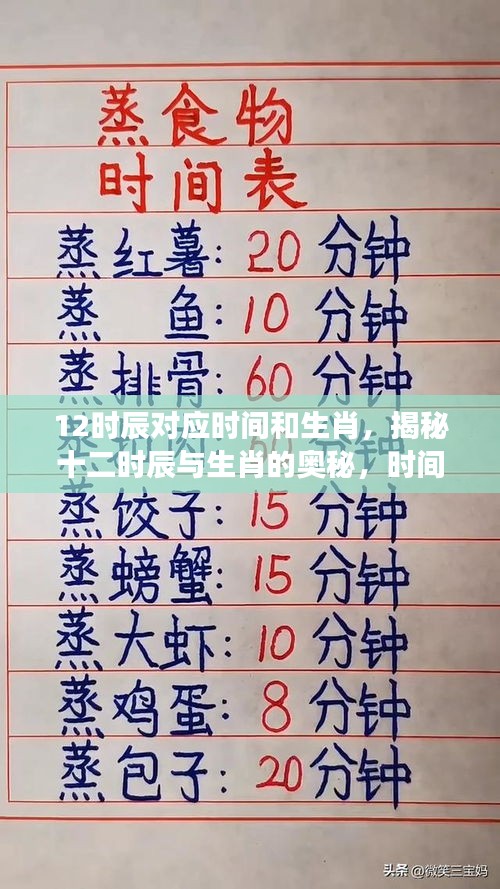 蒸食物
时间表
蒸红薯：20分钟
蒸 鱼：10分钟
蒸排骨：60分钟
12时辰对应时间和生肖，揭秘
十二时辰与生肖的奥秘，时间
蒸饺子：15分钟
蒸螃蟹：15分钟
蒸大虾：10分钟
蒸鸡蛋：8分钟
蒸包子：20分钟
头条 @微笑三宝妈